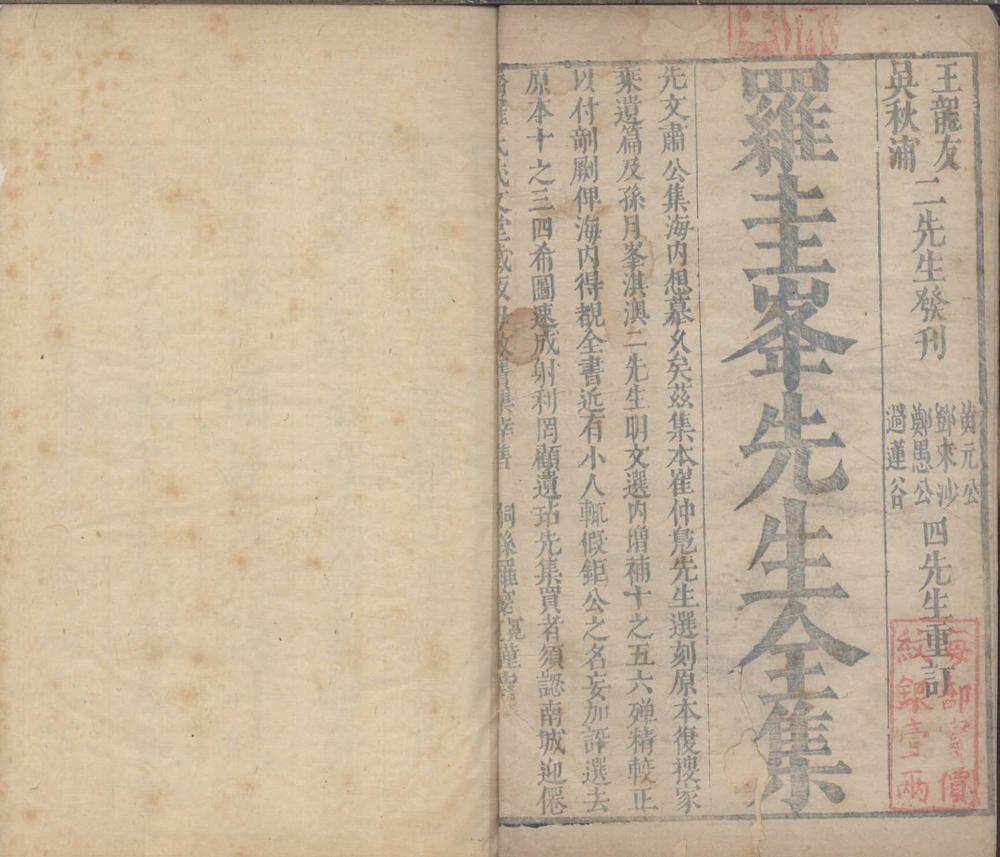 王龍友
吳秋浦
二先生發刊
黃元公
鄧來沙
鄭愚公
過蓮谷
四先生重訂
羅圭峯先生全集
先文肅公集海內想慕久矣茲集本崔仲鳧先生選刻原本復搜家
乘遺篇及孫月峯淇澳二先生明文選內增補十之五六殫精較正
以付剞劂俾海內得覩全書近有小人輒假鉅公之名妄加評選去
原本十之三四希圖速成射利罔顧遺玷先集買者須認南城迎僊
羅氏
嗣孫羅
每部實價
紋銀壹兩